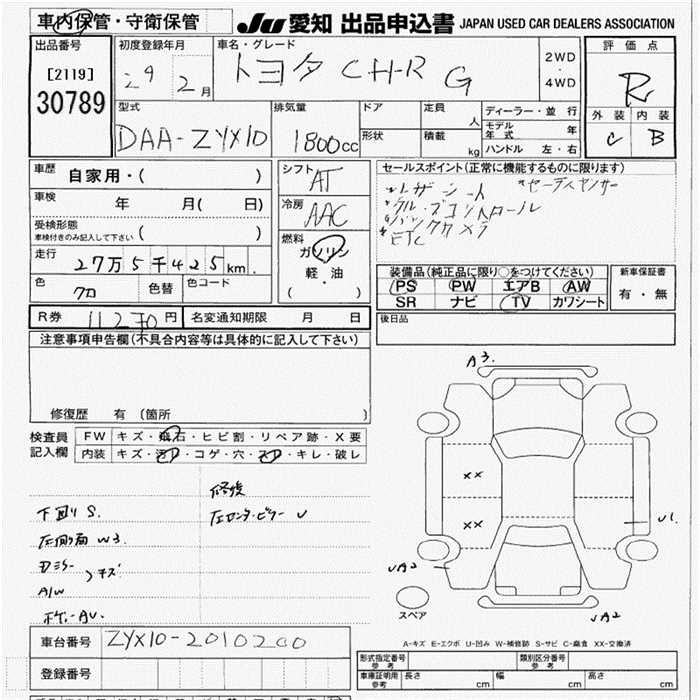 車内保管・守衛保管
JU 愛知 出品申込書 JAPAN USED CAR DEALERS ASSOCIATION
出品番号
[2119]
30789
初度登録年月
29年 2月
車名・グレード
トヨタ CH-R G
2WD
・
4WD
評価点
R
外装 内装
C B
型式
DAA-ZYX10
排気量
1800cc
ドア
形状
定員
人
積載
kg
ディーラー・並行
モデル年式 年
ハンドル 左・右
車歴
自家用・( )
車検
年 月( 日)
受検形態
車検付きのみ記入して下さい ( )
走行
27万5千425km.
色
クロ
色替
色コード
シフト
AT
冷房
AAC
燃料
ガソリン
軽・油
( ・ )
セールスポイント(正常に機能するものに限ります)
・レザーシート
・クルーズコントロール
・バックカメラ
ETC
装備品(純正品に限り○をつけてください)
PS PW エアB AW
SR ナビ TV カワシート
新車保証書
有・無
後日品
R券 11270円
名変通知期限 月 日
注意事項申告欄(不具合内容等は具体的に記入して下さい)
修復歴 有(箇所 )
検査員
記入欄
FW キズ・飛石・ヒビ割・リペア跡・X要
内装 キズ・汚れ・コゲ・穴・スレ・キレ・破レ
下回り S.
左側面 W3
Dミラー
A/W
キズ
ホイ-AU.
修復
左センターピラー U
A3.
XX
XX
U1
UA2
UA2
スペア
A-キズ E-エクボ U-凹み W-補修跡 S-サビ C-腐食 XX-交換済
車台番号 ZYX10-2010200
登録番号
形式指定番号
参考
類別区分番号
参考
車庫証明用
参考
長さ cm 幅 cm 高さ cm